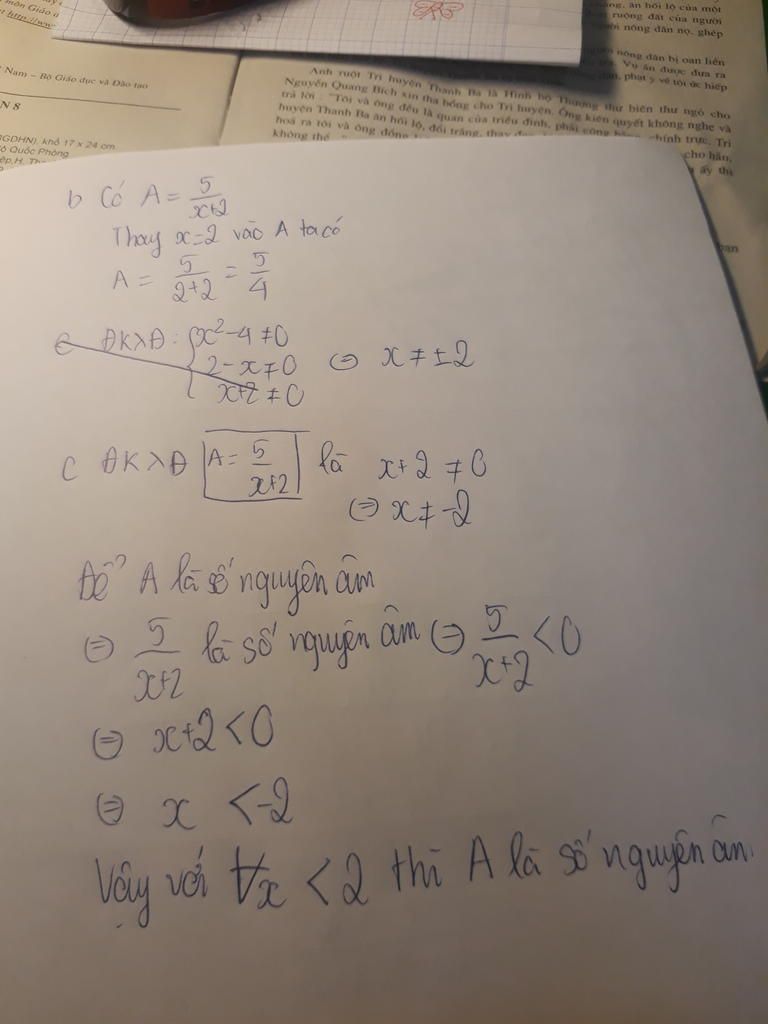 món Giáo d
http://www
Nam – Bộ Giáo dục và Đào tạo
N 8
GDHN), khổ 17 x 24 cm
ô Quốc Phòng
ăng, ăn hối lộ của một
ruộng đất của người
ười nông dân nọ, ghép
nông dân bị oan liền
Vụ án được đưa ra
phạt y về tội ức hiếp
Anh ruột Tri huyện Thanh Ba là Hình bộ Thượng thư biên thư ngỏ cho
Nguyễn Quang Bích xin tha bổng cho Tri huyện. Ông kiên quyết không nghe và
trả lời: "Tôi và ông đều là quan của triều đình, phải công bằng, chính trực, Tri
huyện Thanh Ba ăn hối lộ, đổi trắng, thay
hoá ra tôi và ông đồng
không thể
cho hắn,
ấy thì
b Có A = 5/(x+2)
Thay x=2 vào A ta có
A = 5/(2+2) = 5/4
c ĐKXĐ: { x²-4 ≠ 0
2-x ≠ 0 ⇔ x ≠ ±2
x+2 ≠ 0
C ĐKXĐ A = 5/(x+2) là x+2 ≠ 0
⇔ x ≠ -2
Để A là số nguyên âm
⇔ 5/(x+2) là số nguyên âm ⇔ 5/(x+2) < 0
⇔ x+2 < 0
⇔ x < -2
Vậy với ∀x < 2 thì A là số nguyên âm.